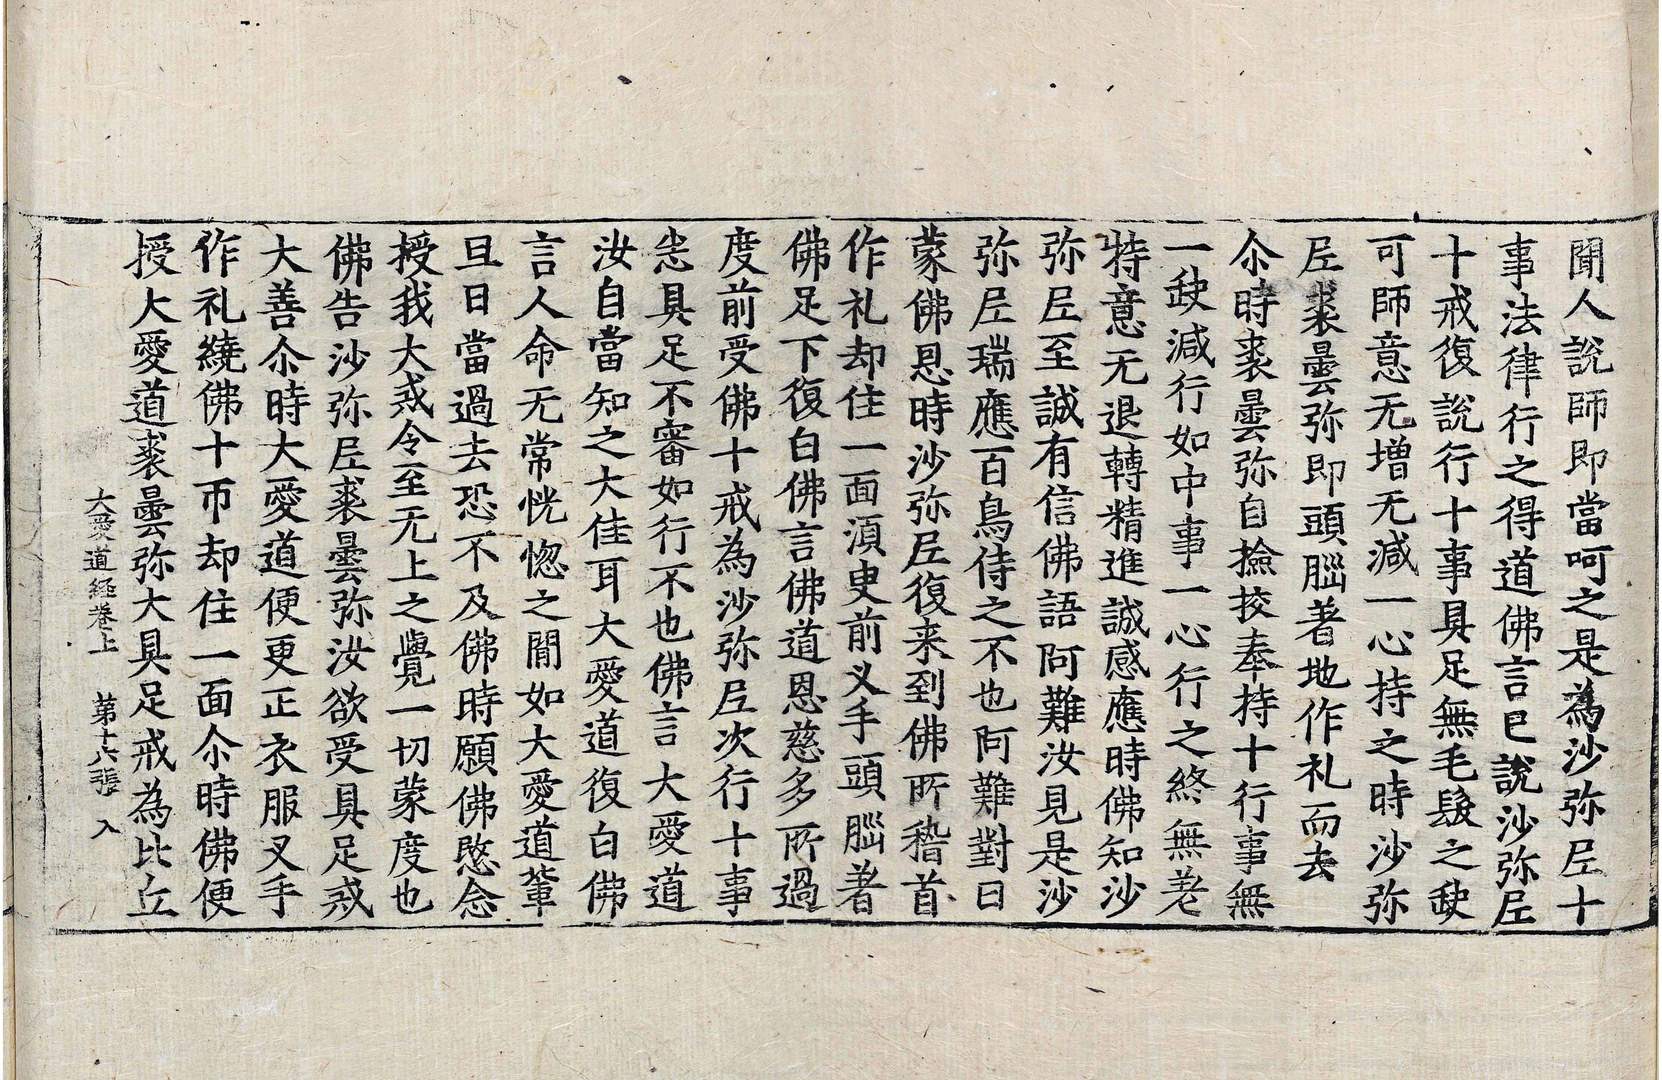 聞人說師即當呵之是為沙弥𡰱十
事法律行之得道佛言已說沙弥𡰱
十戒復說行十事具足無毛髮之缺
可師意无增无減一心持之時沙弥
𡰱裘曇弥即頭腦著地作礼而去
尒時裘曇弥自撿挍奉持十行事無
一缺減行如中事一心行之終無差
特意无退轉精進誠感應時佛知沙
弥𡰱至誠有信佛語阿難汝見是沙
弥𡰱瑞應百鳥侍之不也阿難對曰
蒙佛恩時沙弥𡰱復来到佛所稽首
作礼却住一面湏叟前叉手頭腦著
佛足下復白佛言佛道恩慈多所過
度前受佛十戒為沙弥𡰱次行十事
悉具足不審如行不也佛言大愛道
汝自當知之大佳耳大愛道復白佛
言人命无常恍惚之閒如大愛道輩
旦日當過去恐不及佛時願佛愍念
授我大戒令至无上之覺一切蒙度也
佛告沙弥𡰱裘曇弥汝欲受具足戒
大善尒時大愛道便更正衣服叉手
作礼繞佛十帀却住一面尒時佛便
授大愛道裘曇弥大具足戒為比丘
大愛道経卷上　第十六張　入